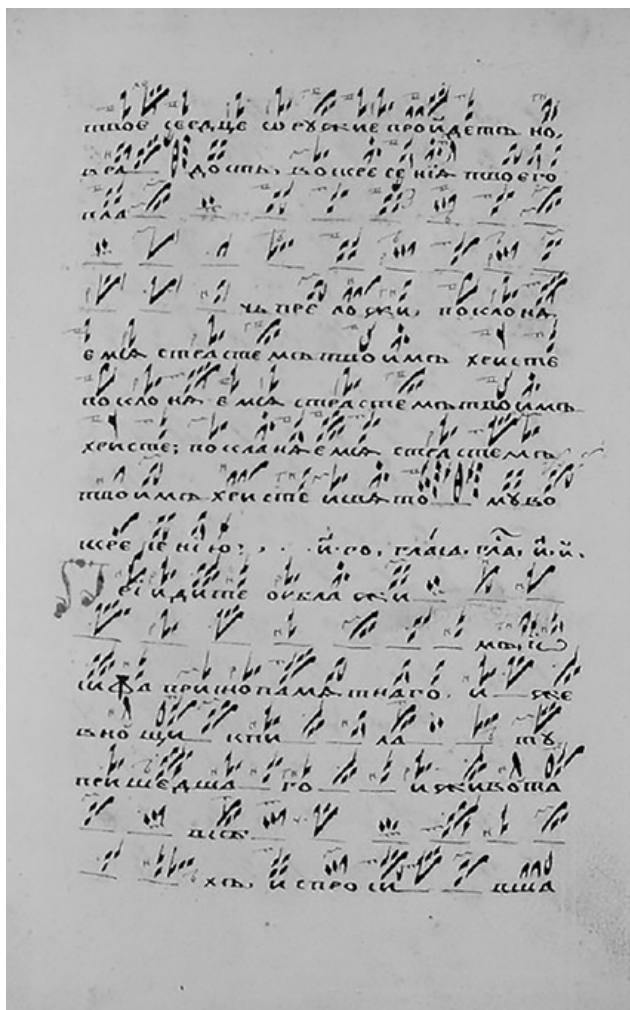 твое сердце ѡрꙋжие пройдетъ но,
в ра дость, воскресениѧ твоего
пла
чь преложи, поклонѧ,
емсѧ страстемъ твоимъ христе
поклонѧемсѧ страстемъ твоимъ
христе; покланѧемсѧ страстемъ
твоимъ христе и свѧто мꙋ во
скресению:
прїидите ꙋбла жи
мъ, іѡ
сифа приснопамѧтнаго, и же
в нощи кпи ла тꙋ
пришедша го и живота
всѣ
хъ, испроси вша